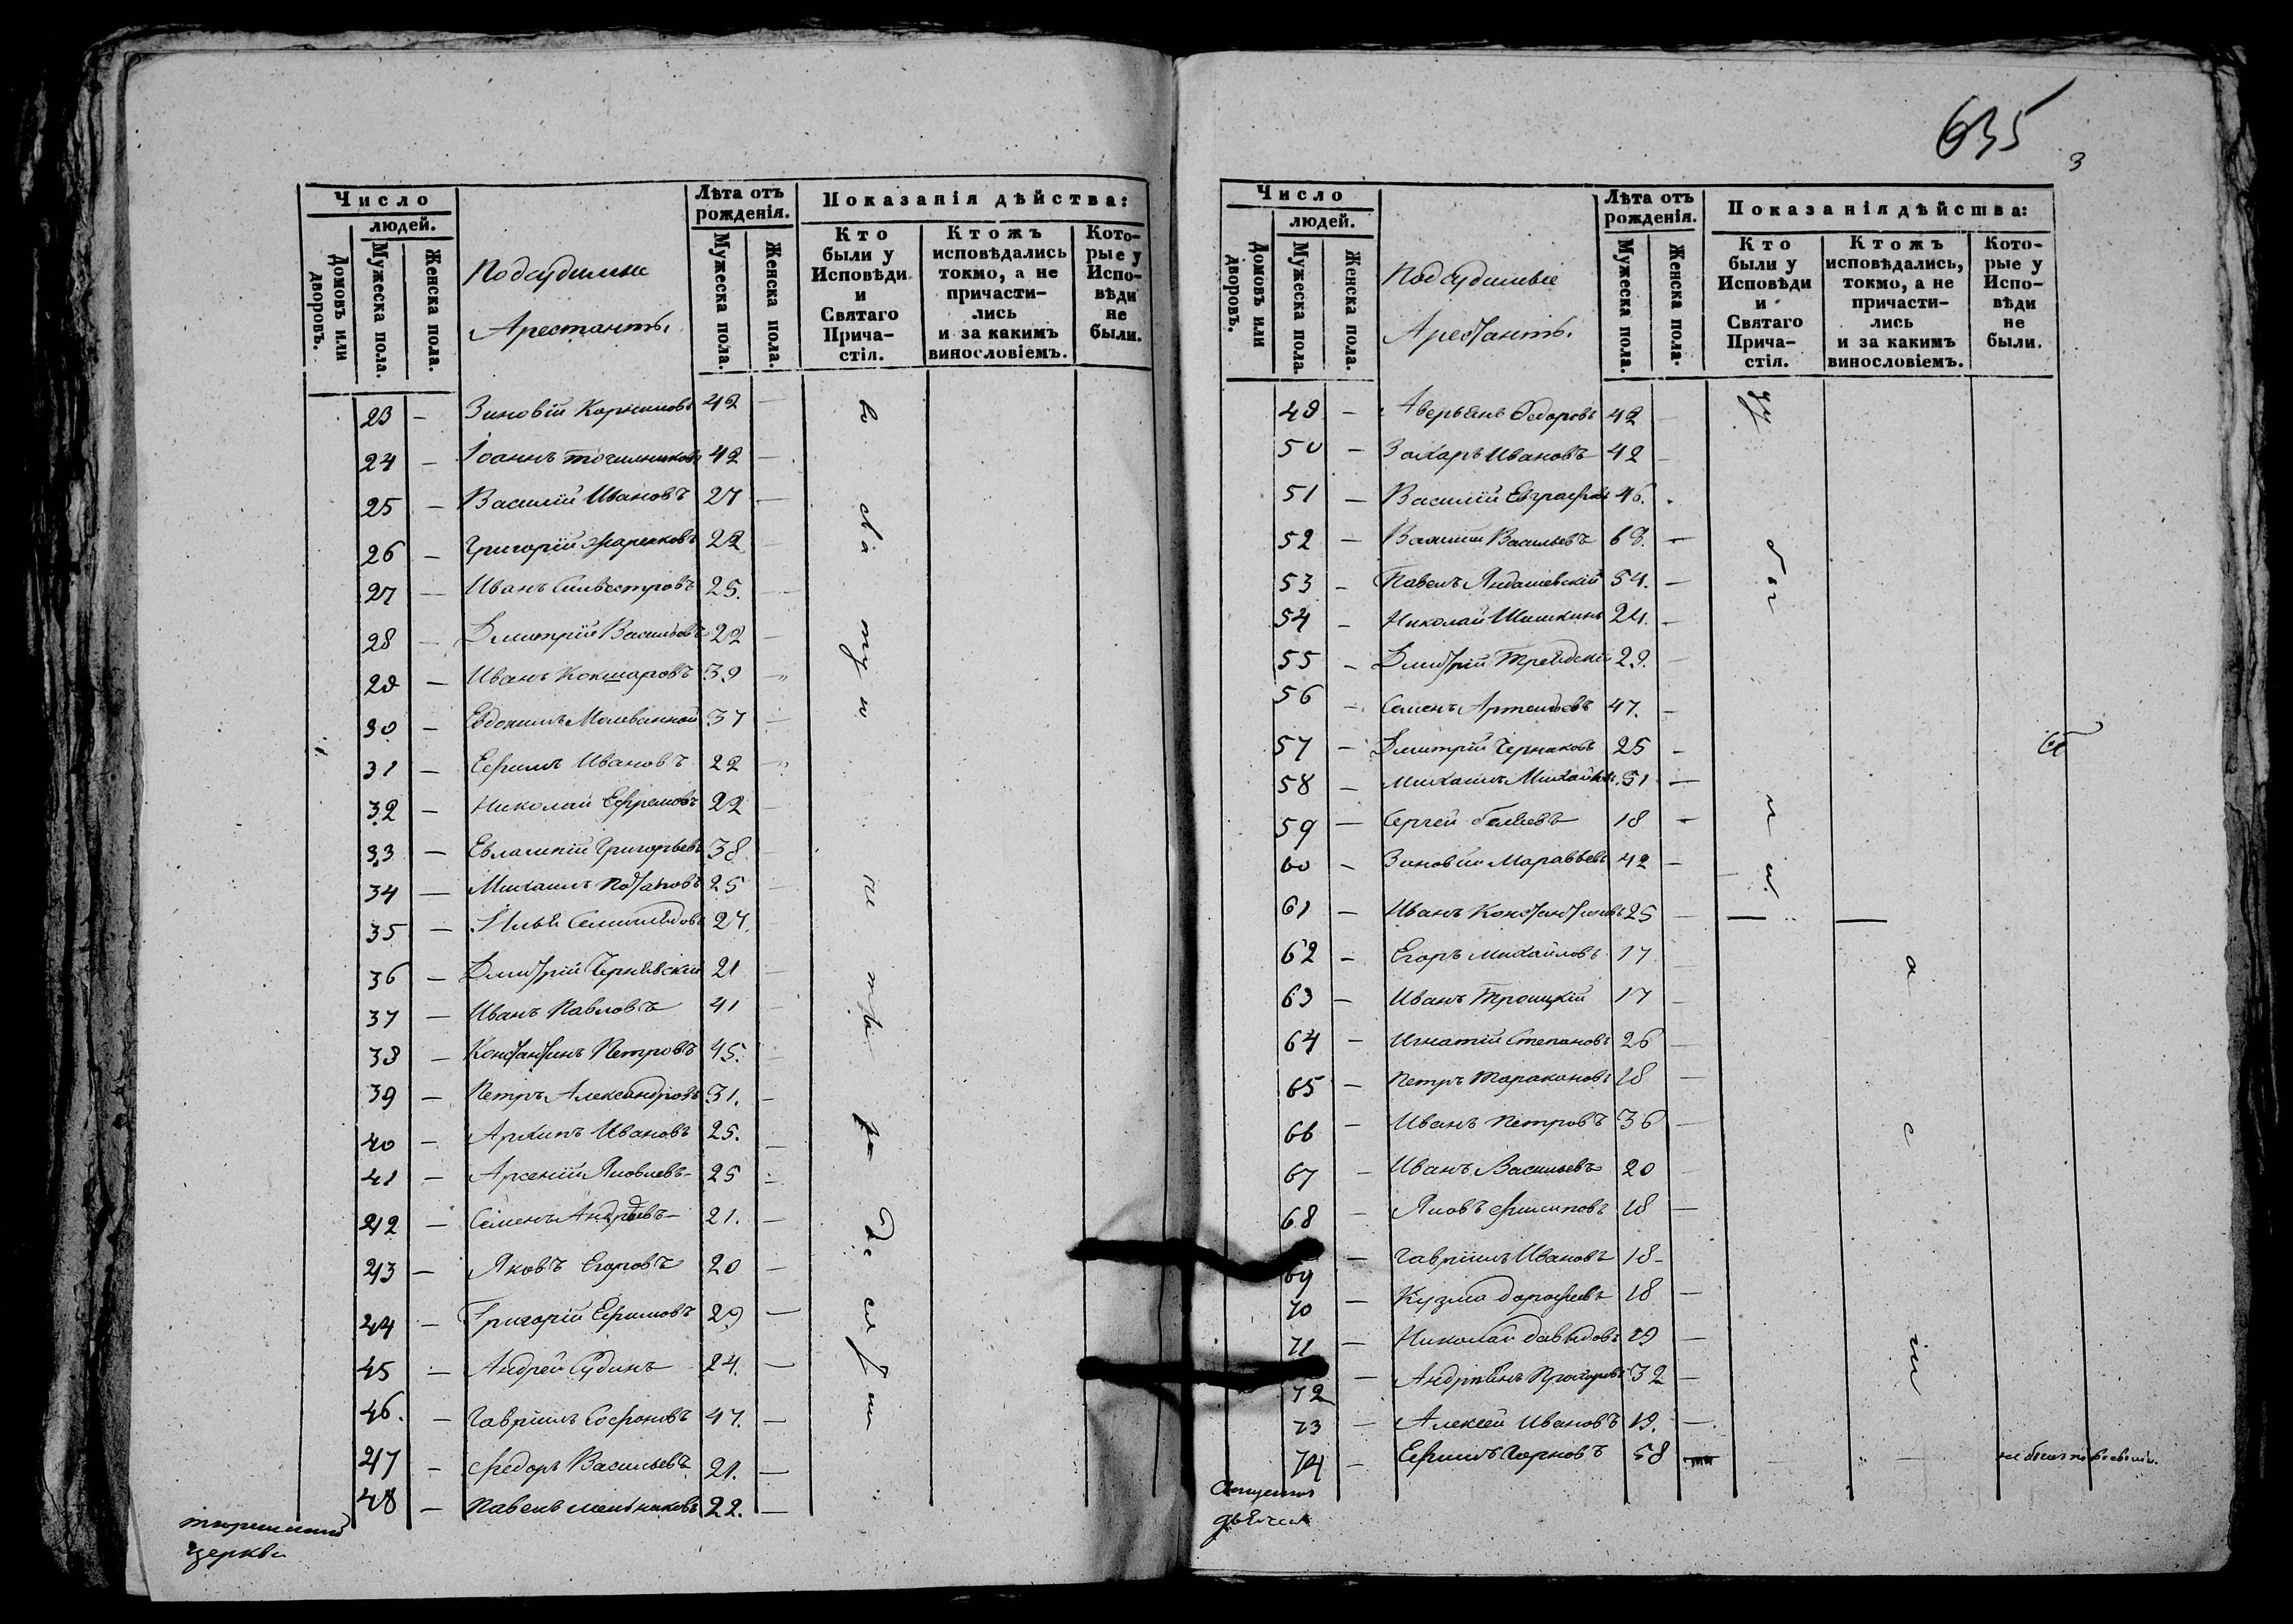 635
3
Число
людей.
Домовъ или дворовъ.
Мужеска пола.
Женска пола.
Подсудимые
Арестанты
Лѣта отъ рожденія.
Мужеска пола.
Женска пола.
Показанія дѣйства:
Кто были у Исповѣди и Святаго Прича-стія.
Ктожъ исповѣдались токмо, а не причасти-лись и за какимъ винословіемъ.
Кото-рые у Испо-вѣди не были.
23 — Зиновій Корниловъ 42 —
24 — Іоаннъ Точильниковъ 42 —
25 — Василій Ивановъ 27 —
26 — Григорій 22 —
27 — Иванъ Сильвестровъ 25. —
28 — Дмитрій Васильевъ 22 —
29 — Иванъ Кокшаровъ 39 —
30 — Евдокимъ Молеванной 37 —
31 — Ефимъ Ивановъ 22 —
32 — Николай Ефремовъ 22 —
33 — Евлампій Григорьевъ 38 —
34 — Михаилъ Потаповъ 25 —
35 — Илья 27.
36 — Дмитрій Чернявскій 21 —
37 — Иванъ Павловъ 41 —
38 — Константинъ Петровъ 45. —
39 — Петръ Александровъ 31. —
40 — Архипъ Ивановъ 25. —
41 — Арсеній Яковлевъ 25 —
42 — Семенъ Андреевъ 21. —
43 — Яковъ Егоровъ 20 —
44 — Григорій Ефимовъ 29 —
45 — Андрей Судинъ 24. —
46. — Гавріилъ Софоновъ 47. —
47 — Федоръ Васильевъ 21. —
48 — Павелъ Мельниковъ 22. —
тюремной
церкви
Число
людей.
Домовъ или дворовъ.
Мужеска пола.
Женска пола.
Подсудимые
Арестанты.
Лѣта отъ рожденія.
Мужеска пола.
Женска пола.
Показанія дѣйства:
Кто были у Исповѣди и Святаго Прича-стія.
Ктожъ исповѣдались, токмо, а не причасти-лись и за какимъ винословіемъ.
Кото-рые у Испо-вѣди не были.
49 — Аверьянъ Федоровъ 42 —
50 — Захаръ Ивановъ 42 —
51 — Василій Евграфовъ 46.
52 — Василій Васильевъ 68. —
53 — Павелъ 54. —
54 — Николай Шишкинъ 24. —
55 — Дмитрій 29. —
56 — Семенъ Артемьевъ 47. —
57 — Дмитрій Черпаковъ 25 —
58 — Михаилъ Михайловъ 31 —
59 — Сергей Беляевъ 18 —
60 — Зиновій 42 —
61 — Иванъ Константиновъ 25 —
62 — Егоръ Михайловъ 17
63 — Иванъ Троицкій 17 —
64 — Игнатій Степановъ 26 —
65 — Петръ Таракановъ 18 —
66 — Иванъ Петровъ 36 —
67 — Иванъ Васильевъ 20 —
68 — Яковъ Филиповъ 18 —
69 — Гавріилъ Ивановъ 18 —
70 — Кузма Дорофеевъ 18 —
71 — Николай Давыдовъ 19 —
72 — Андріянъ Прохоровъ 32 —
73 — Алексей Ивановъ 19. —
74 — Ефимъ Горновъ 58 —
Священник